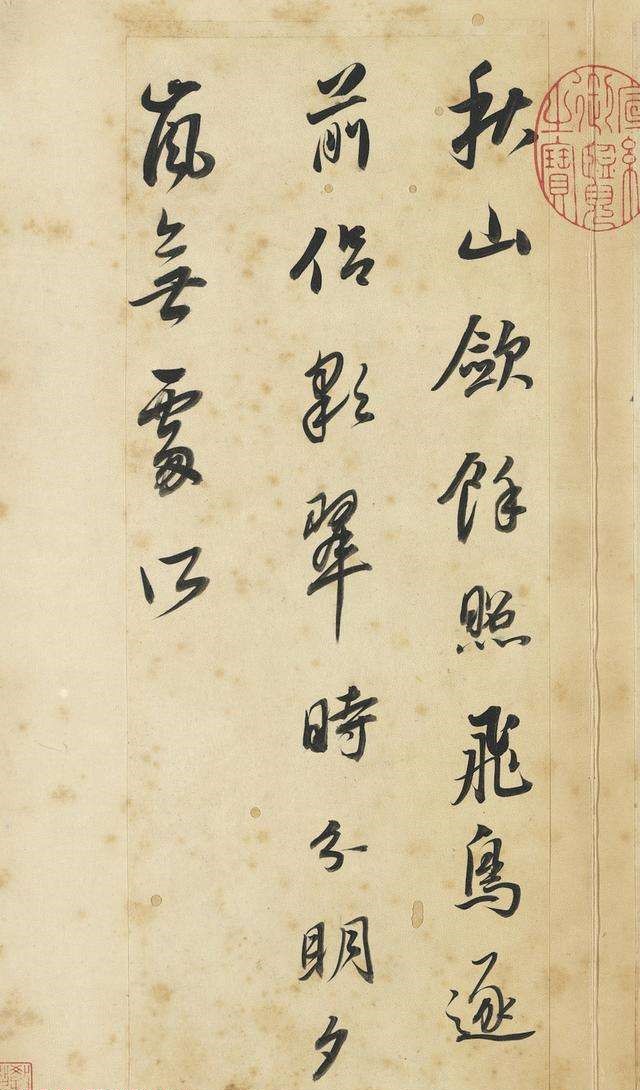 宣統
御覽
之寶
秋山歛餘照飛鳥逐
前侶彩翠時分明夕
嵐無處所